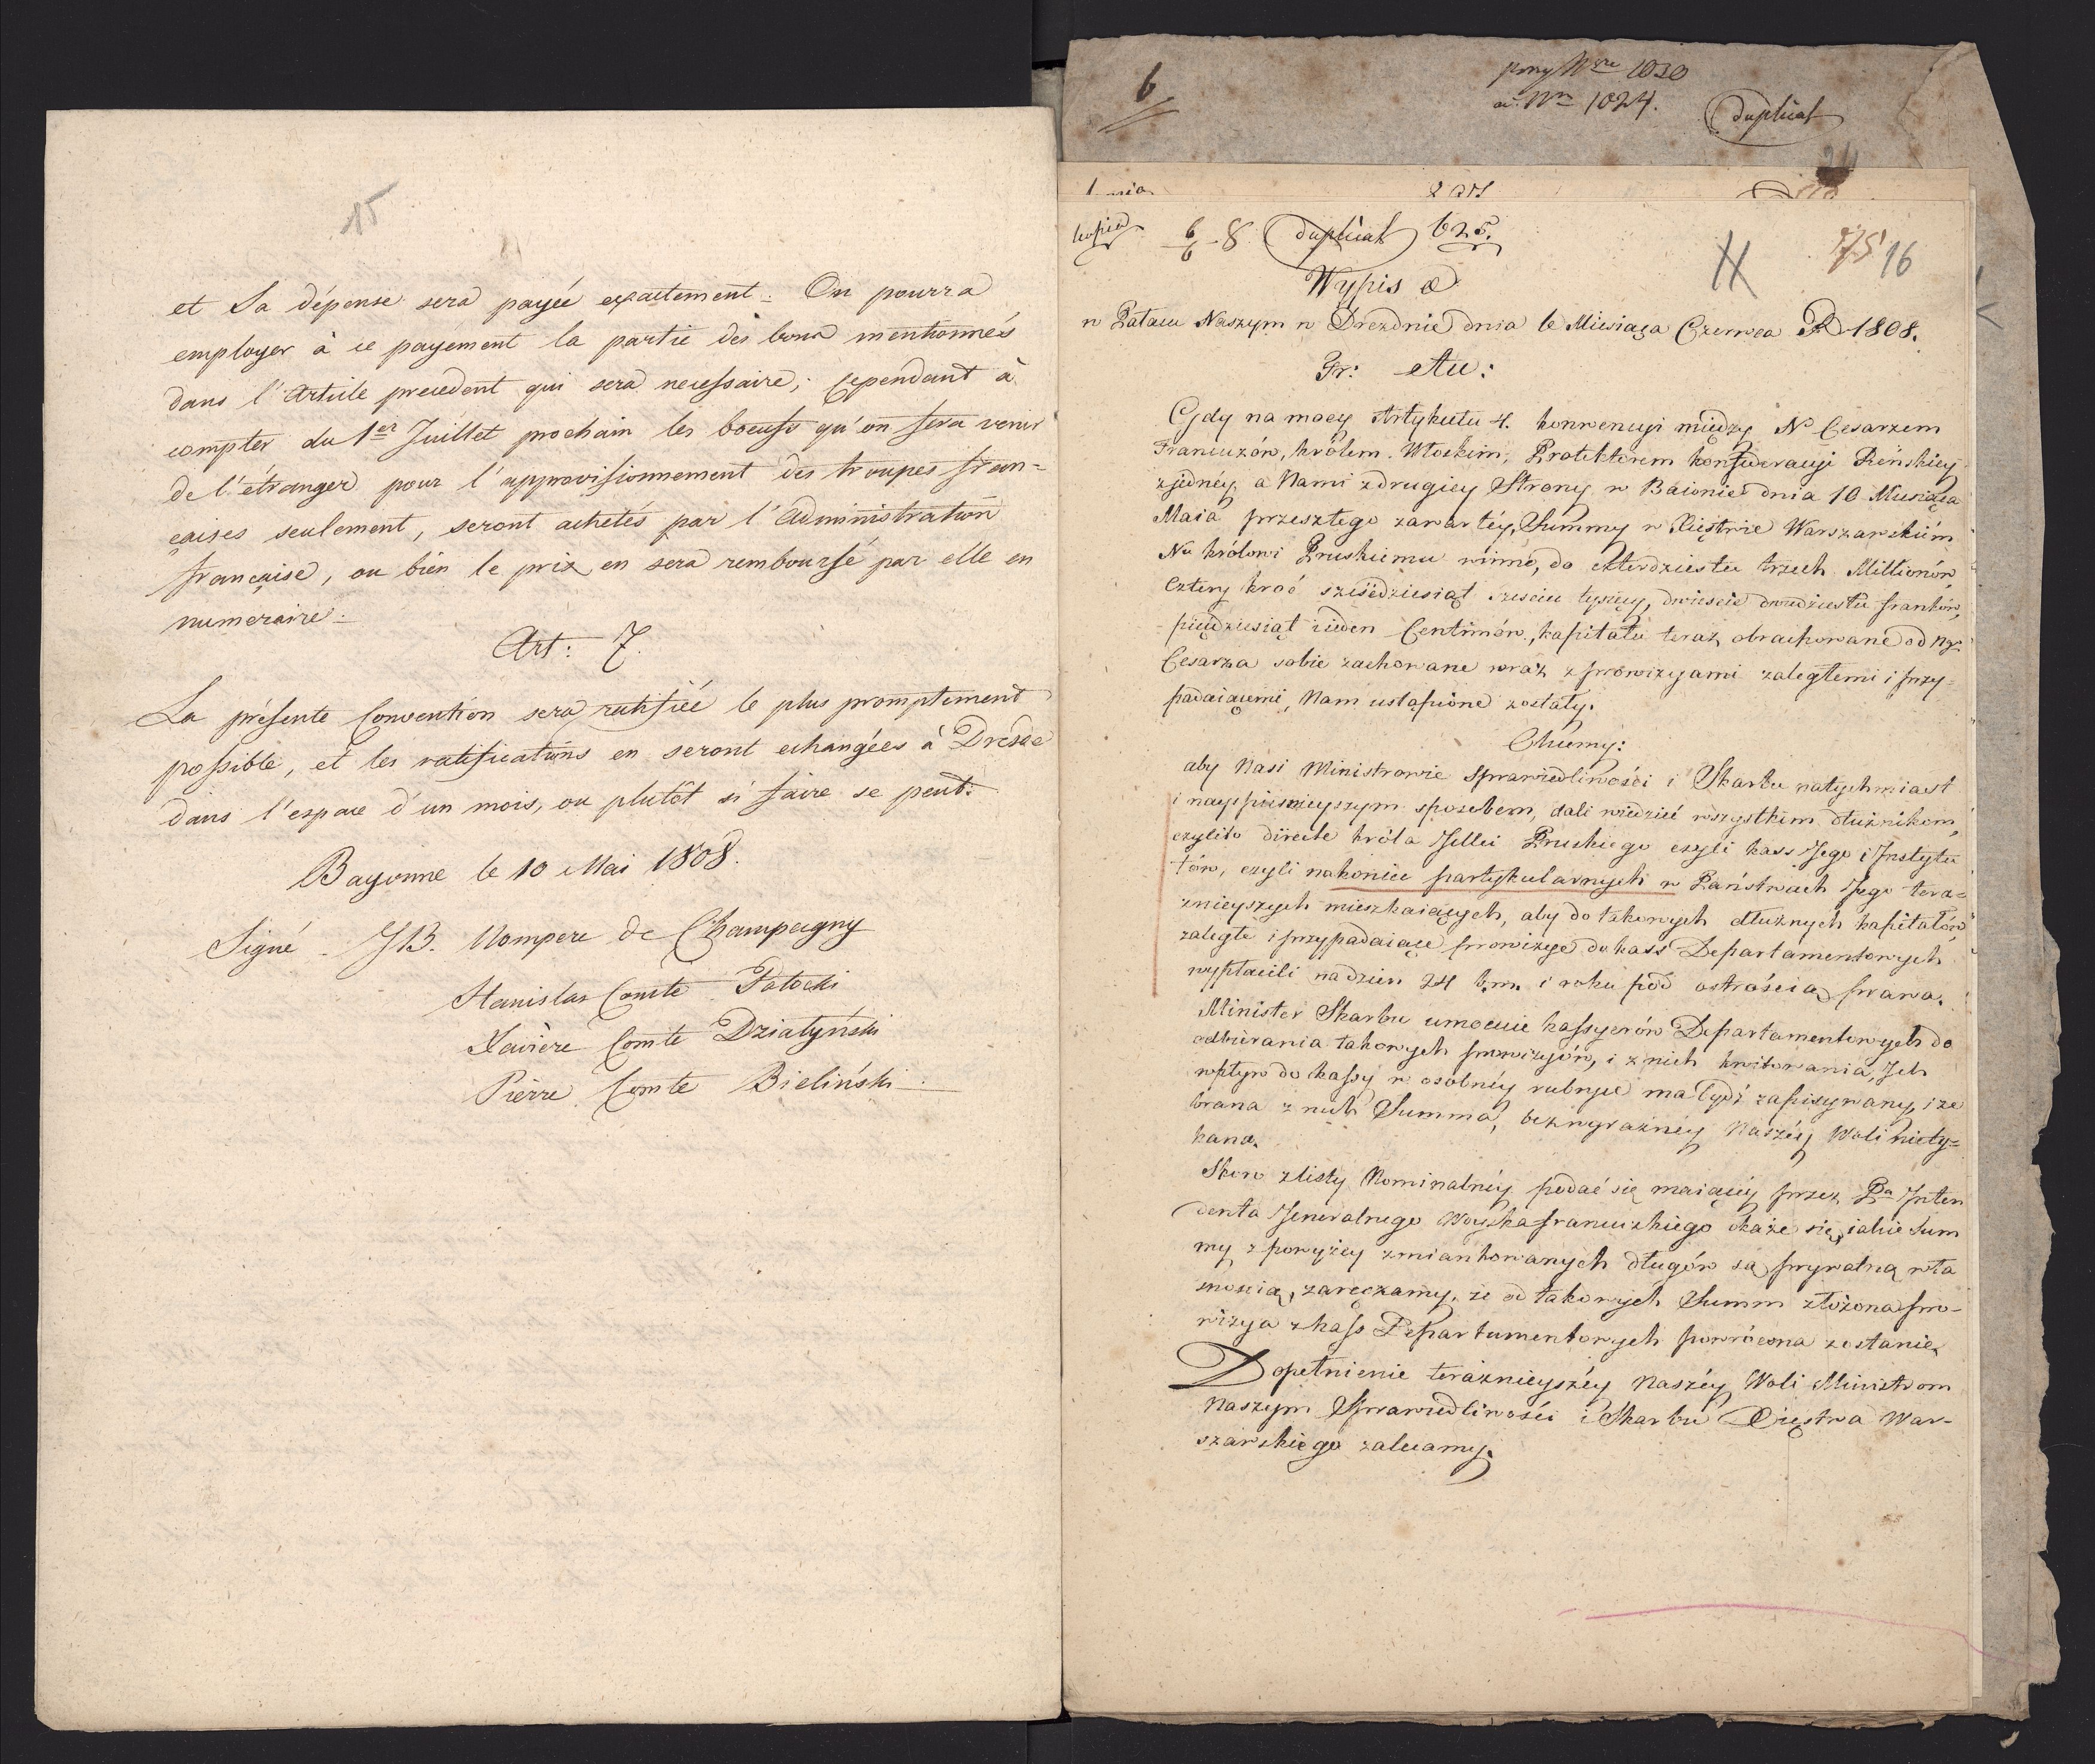 15
et Sa dépense sera payée exactement. On pourra
employer à ce payement la partie des bons mentionnés
dans l'Article precedent qui sera necessaire; cependant à
compter du 1er Juillet prochain les boeufs qu'on fera venir
de l'étranger pour l'approvisionnement des troupes fran=
çaises seulement, seront achetés par l'Administration
française, ou bien le prix en sera remboursé par elle en
numeraire.
Art: 7.
La présente Convention sera ratifiée le plus promptement
possible, et les ratifications en seront echangées à Dresde
dans l'espace d'un mois, ou plutôt si faire se peut.
Bayonne le 10 Mai 1808.
Signé JB. Nompere de Champagny
Stanislas Comte Potocki
Xavière Comte Działyński
Pierre Comte Bieliński
6
1030
a Nro 1024.
duplicat
kopia 6/6 8 duplicat 625.
75 16
Wypis
w Pałacu Naszym w Dreznie dnia 6 Miesiąca Czerwca R 1808.
Fr: Au:
Gdy na mocy Artykułu 4. konwencyi między N Cesarzem
Francuzów, królem Włoskim, Protektorem konfederacyi Reńskiey
z jednéy, a Nami z drugiey Strony w Baionie dnia 10 Miesiąca
Maia przeszłego zawartéy, Summy w Xięstwie Warszawskiém
Nu królowi Pruskiemu winne, do czterdziestu trzech Millionów
cztery kroć sześćdziesiąt sześciu tysięcy, dwieście dwudziestu franków,
pięćdziesiąt ieden Centimów, kapitału teraz obrachowane od Ngo
Cesarza sobie zachowane wraz z prowizyami zaległemi i przy-
padaiącemi, Nam ustąpione zostały.
Chcemy:
aby Nasi Ministrowie Sprawiedliwości i Skarbu natychmiast
i nayspiesznieyszym sposobem, dali wiedzieć wszystkim dłużnikom,
czyli to directe króla Jmci Pruskiego czyli kass Jego i Instytu
tów, czyli nakoniec partykularnych w Państwach Jego tera=
znieyszych mieszkaiących, aby do takowych dłużnych kapitałów
zaległe i przypadaiące prowizye do kass Departamentowych
wypłacili na dzień 24 b.m. i roku pod ostrością prawa.
Minister Skarbu umocuie kassyerów Departamentowych do
odbierania takowych prowizyów, i z nich kwitowania, Ich
wpływ do kassy w osobnéy rubryce ma bydź zapisywany, i ze
brana z nich Summa, bez wyraźnéy Naszéy Woli niety=
kana.
Skoro z listy Nominalnéy podać się maiącéy przez Pa Inten
denta Jeneralnego Woyska francuzkiego okaże się, iakie Sum
my z powyżéy zmiankowanych długów są prywatną wła
snością, zaręczamy, że od takowych Summ złożona pro-
wizya z kass Departamentowych powrócona zostanie.
Dopełnienie teraznieyszéy Naszéy Woli Ministrom
Naszym Sprawiedliwości i Skarbu Xięstwa War-
szawskiego zalecamy.